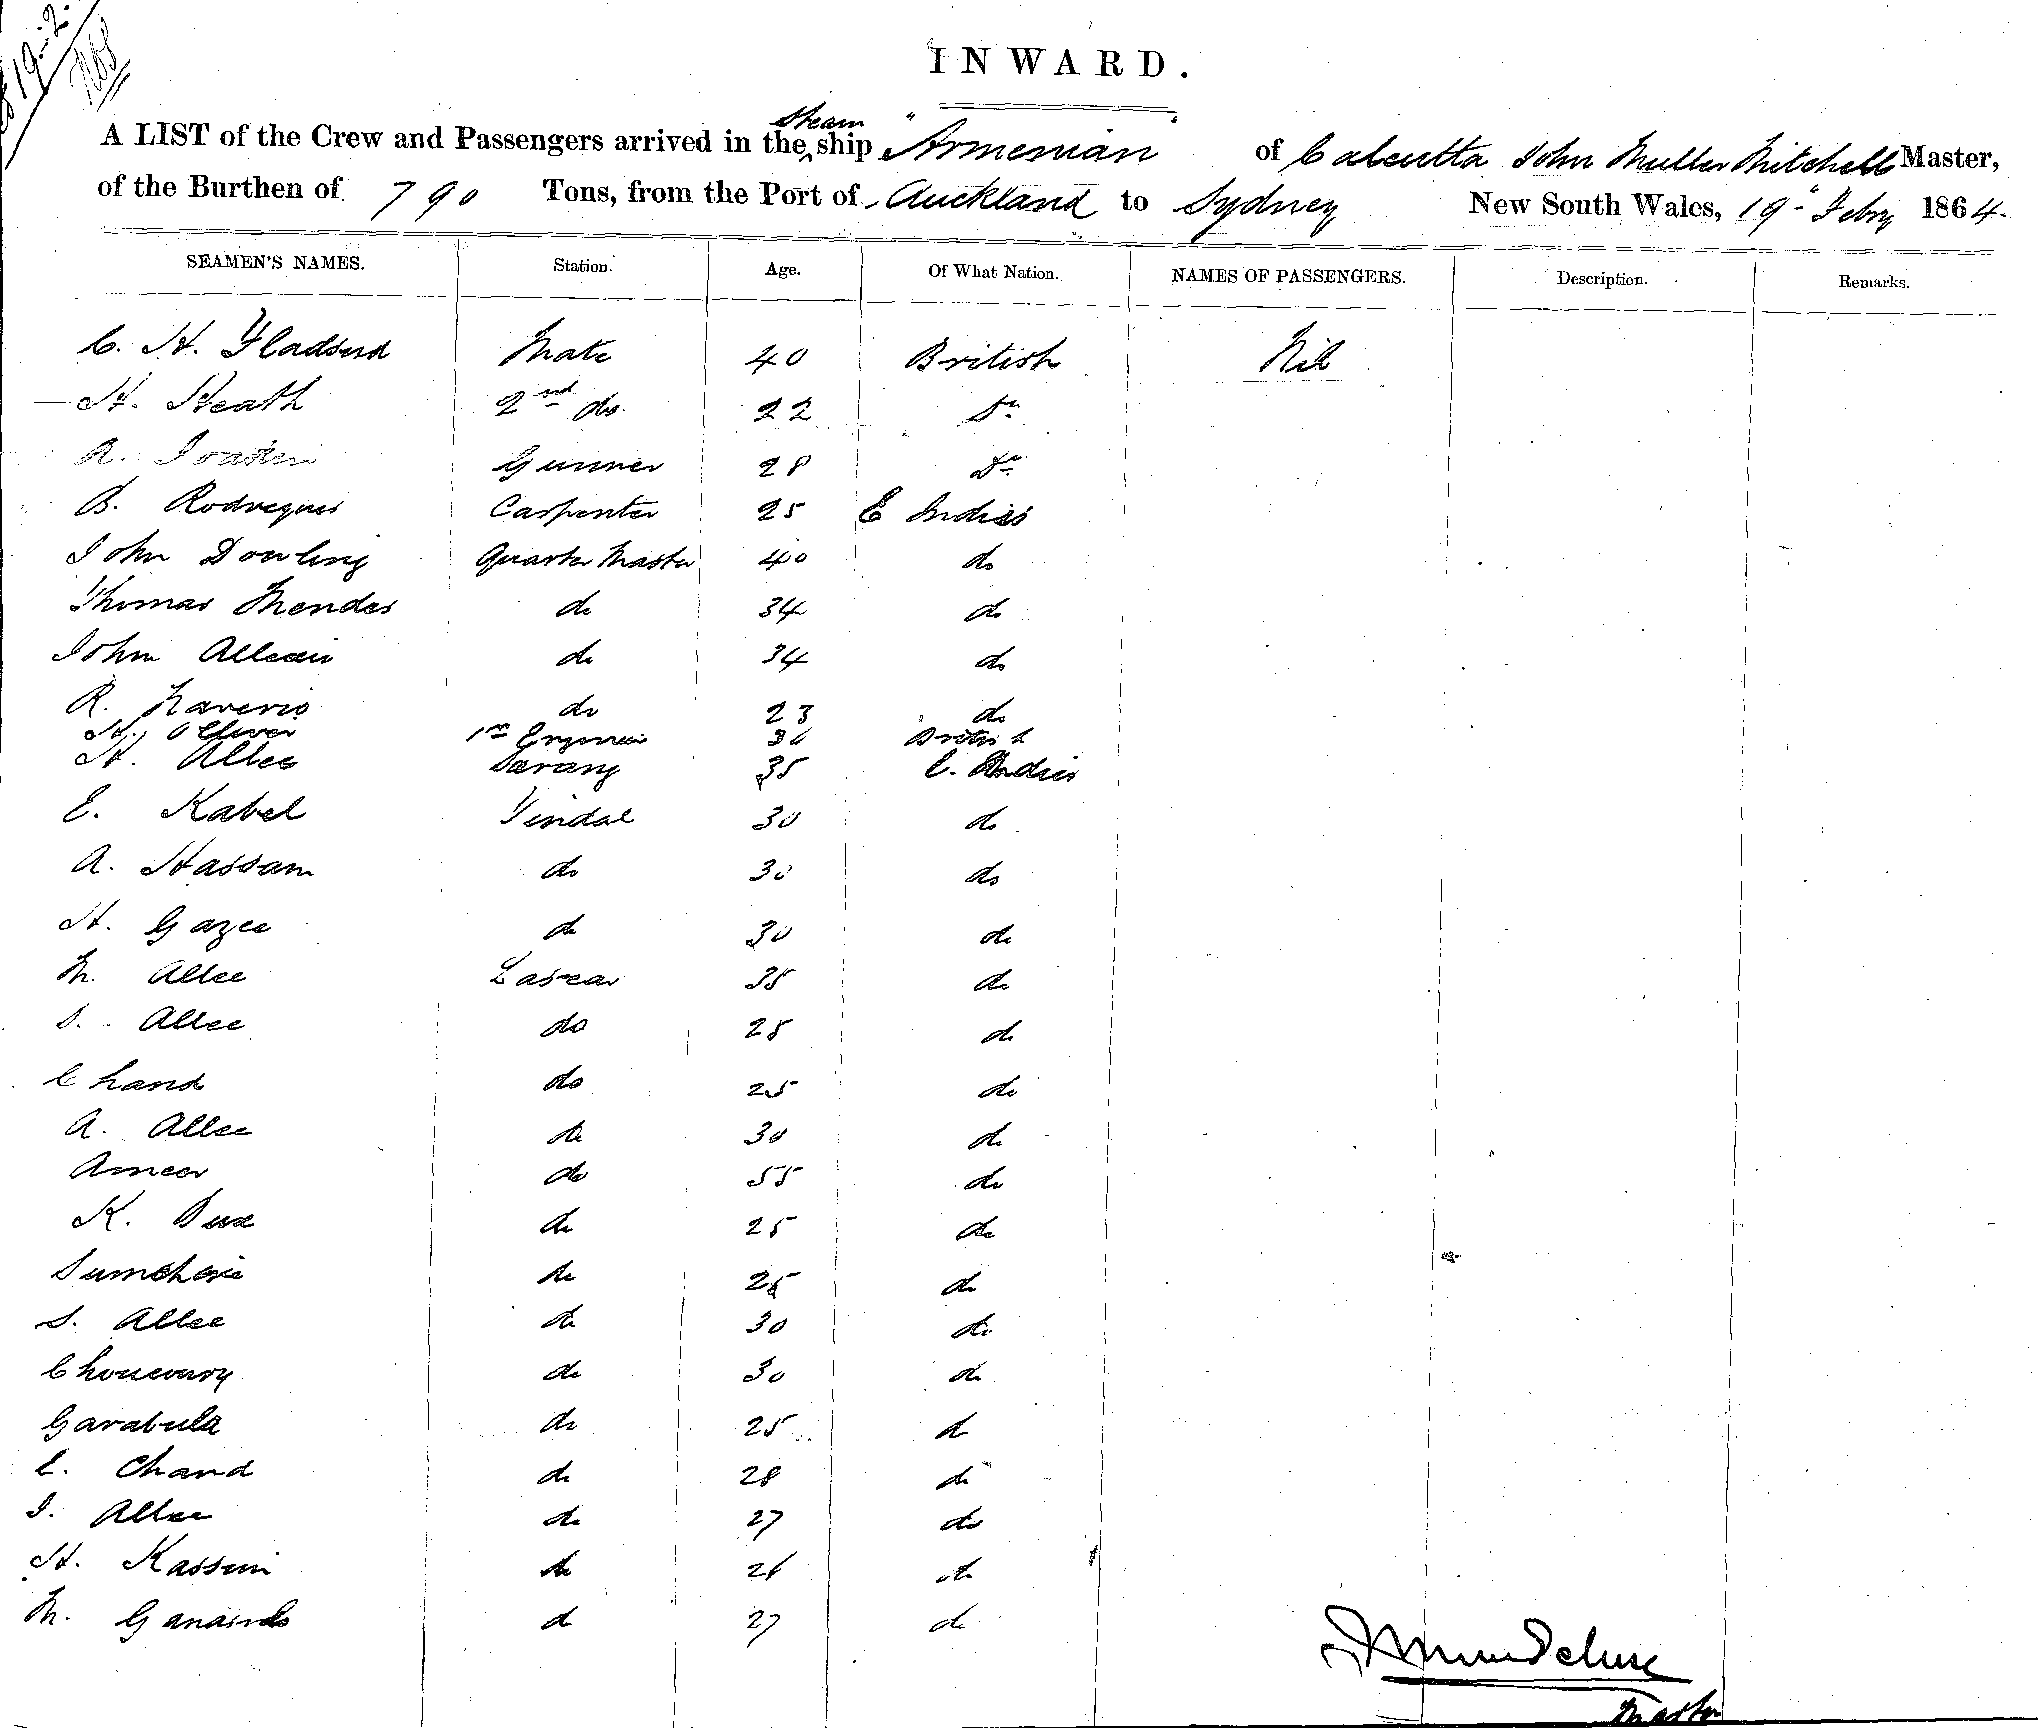 19-2
INWARD.
A LIST of the Crew and Passengers arrived in the Steam ship "Armenian" of Calcutta John Muller Mitchell Master,
of the Burthen of 790 Tons, from the Port of Auckland to Sydney New South Wales, 19" Febry 1864.
SEAMEN'S NAMES. Station. Age. Of What Nation. NAMES OF PASSENGERS. Description. Remarks.
C. H. Mate 40 British Nil
H. Heath 2nd do 22 Do
R. Gunner 28 Do
B. Rodregues Carpenter 25 E Indies
John Dowling Quarter Master 40 do
Thomas Mendes do 34 do
John do 34 do
R. do 23 do
H. Oliver 1st Engineer British
H. Allee Sarang 35 E. Indies
E. Kabel Tindal 30 do
A. Hassam do 30 do
H. Gazee do 30 do
M. Allee Lascar 35 do
S. Allee do 25 do
Chand do 25 do
A. Allee do 30 do
Ameer do 55 do
K. Bux do 25 do
do 25 do
S. Allee do 30 do
do 30 do
Garabula do 25 do
E. Chand do 28 do
I. Allee do 27 do
H. Kassim do 26 do
M. do 27 do
Master